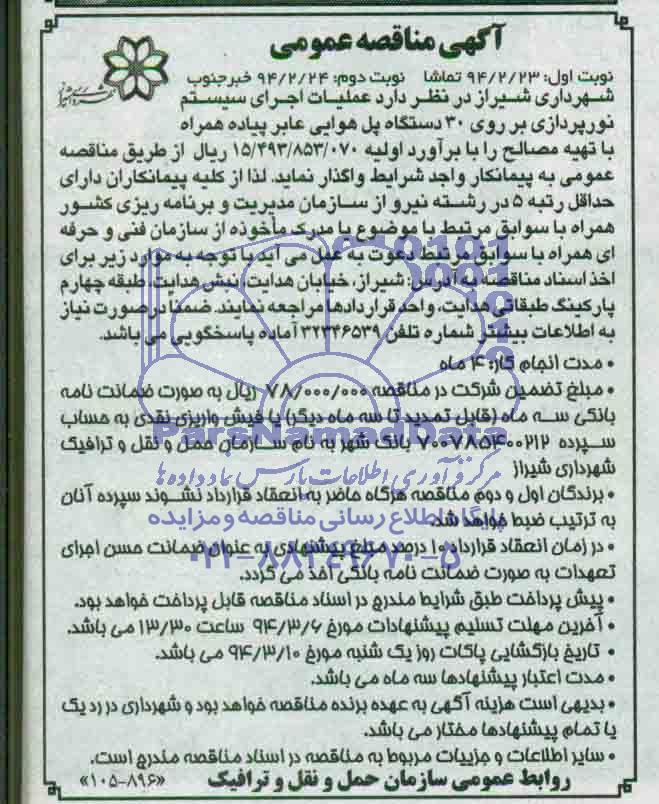 آگهی مناقصه عمومی
نوبت اول: ۹۴/۲/۲۳ تماشا نوبت دوم: ۹۴/۲/۲۴ خبرجنوب
شهرداری شیراز در نظر دارد عملیات اجرای سیستم
نورپردازی بر روی ۳۰ دستگاه پل هوایی عابر پیاده همراه
با تهیه مصالح را با برآورد اولیه ۱۵/۴۹۳/۸۵۳/۰۷۰ ریال از طریق مناقصه
عمومی به پیمانکار واجد شرایط واگذار نماید. لذا از کلیه پیمانکاران دارای
حداقل رتبه ۵ در رشته نیرو از سازمان مدیریت و برنامه ریزی کشور
همراه با سوابق مرتبط با موضوع یا مدرک مأخوذه از سازمان فنی و حرفه
ای همراه با سوابق مرتبط دعوت به عمل می آید با توجه به موارد زیر برای
اخذ اسناد مناقصه به آدرس: شیراز، خیابان هدایت، نبش هدایت، طبقه چهارم
پارکینگ طبقاتی هدایت، واحد قراردادها مراجعه نمایند. ضمنا درصورت نیاز
به اطلاعات بیشتر شماره تلفن ۳۲۳۴۶۵۳۹ آماده پاسخگویی می باشد.
• مدت انجام کار: ۴ ماه
• مبلغ تضمین شرکت در مناقصه ۷۸/۰۰۰/۰۰۰ ریال به صورت ضمانت نامه
بانکی سه ماه (قابل تمدید تا سه ماه دیگر) یا فیش واریزی نقدی به حساب
سپرده ۷۰۰۷۸۵۴۰۰۲۱۲ بانک شهر به نام سازمان حمل و نقل و ترافیک
شهرداری شیراز
ParsNamadData
مرکز فرآوری اطلاعات پارس نماد داده ها
• برندگان اول و دوم مناقصه هرگاه حاضر به انعقاد قرارداد نشوند سپرده آنان
به ترتیب ضبط خواهد شد.
پایگاه اطلاع رسانی مناقصه و مزایده
• در زمان انعقاد قرارداد ۱۰ درصد مبلغ پیشنهادی به عنوان ضمانت حسن اجرای
۰۲۱-۸۸۳۴۹۶۷۰-۵
تعهدات به صورت ضمانت نامه بانکی اخذ می گردد.
• پیش پرداخت طبق شرایط مندرج در اسناد مناقصه قابل پرداخت خواهد بود.
• آخرین مهلت تسلیم پیشنهادات مورخ ۹۴/۳/۶ ساعت ۱۳/۳۰ می باشد.
• تاریخ بازگشایی پاکات روز یک شنبه مورخ ۹۴/۳/۱۰ می باشد.
• مدت اعتبار پیشنهادها سه ماه می باشد.
• بدیهی است هزینه آگهی به عهده برنده مناقصه خواهد بود و شهرداری در رد یک
یا تمام پیشنهادها مختار می باشد.
• سایر اطلاعات و جزییات مربوط به مناقصه در اسناد مناقصه مندرج است.
روابط عمومی سازمان حمل و نقل و ترافیک «۱۰۵-۸۹۶»